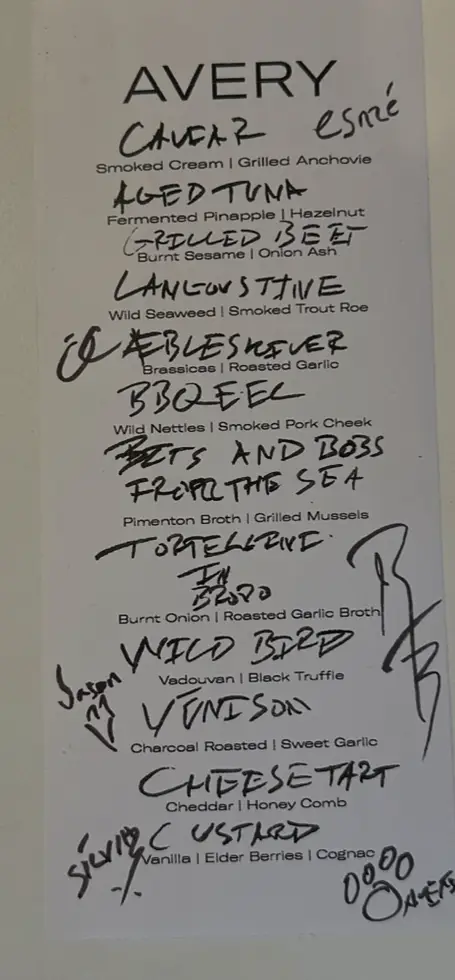 AVERY
CAVEAR
Smoked Cream | Grilled Anchovie
AGED TUNA
Fermented Pinapple | Hazelnut
GRILLED BEET
Burnt Sesame | Onion Ash
LANGOUSTINE
Wild Seaweed | Smoked Trout Roe
ÆBLESKIEVER
Brassicas | Roasted Garlic
BBQ EEL
Wild Nettles | Smoked Pork Cheek
BITS AND BOBS
FROM THE SEA
Pimenton Broth | Grilled Mussels
TORTELLINI
IN
BRODO
Burnt Onion | Roasted Garlic Broth
WILD BIRD
Vadouvan | Black Truffle
Jason
VENISON
Charcoal Roasted | Sweet Garlic
CHEESE TART
Cheddar | Honey Comb
CUSTARD
Vanilla | Elder Berries | Cognac